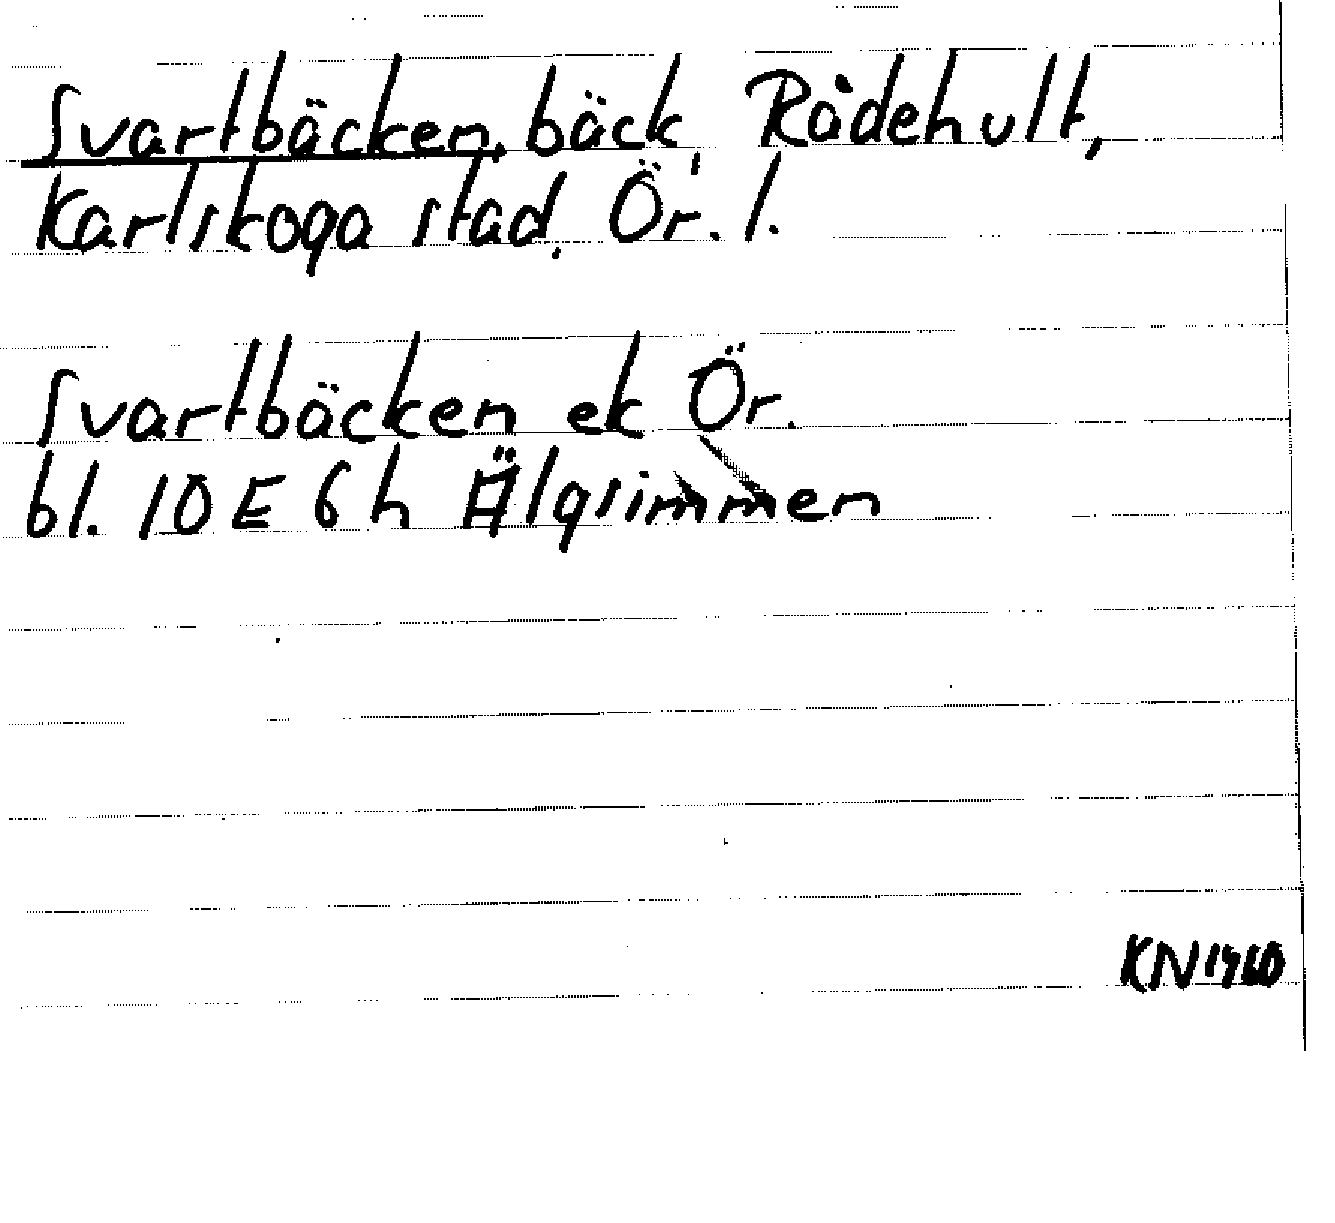 Svartbäcken, bäck, Rådehult,
Karlskoga stad, Ör. l.
Svartbäcken ek Ör.
bl. 10 E 6 h Älgsimmen
KN 1960